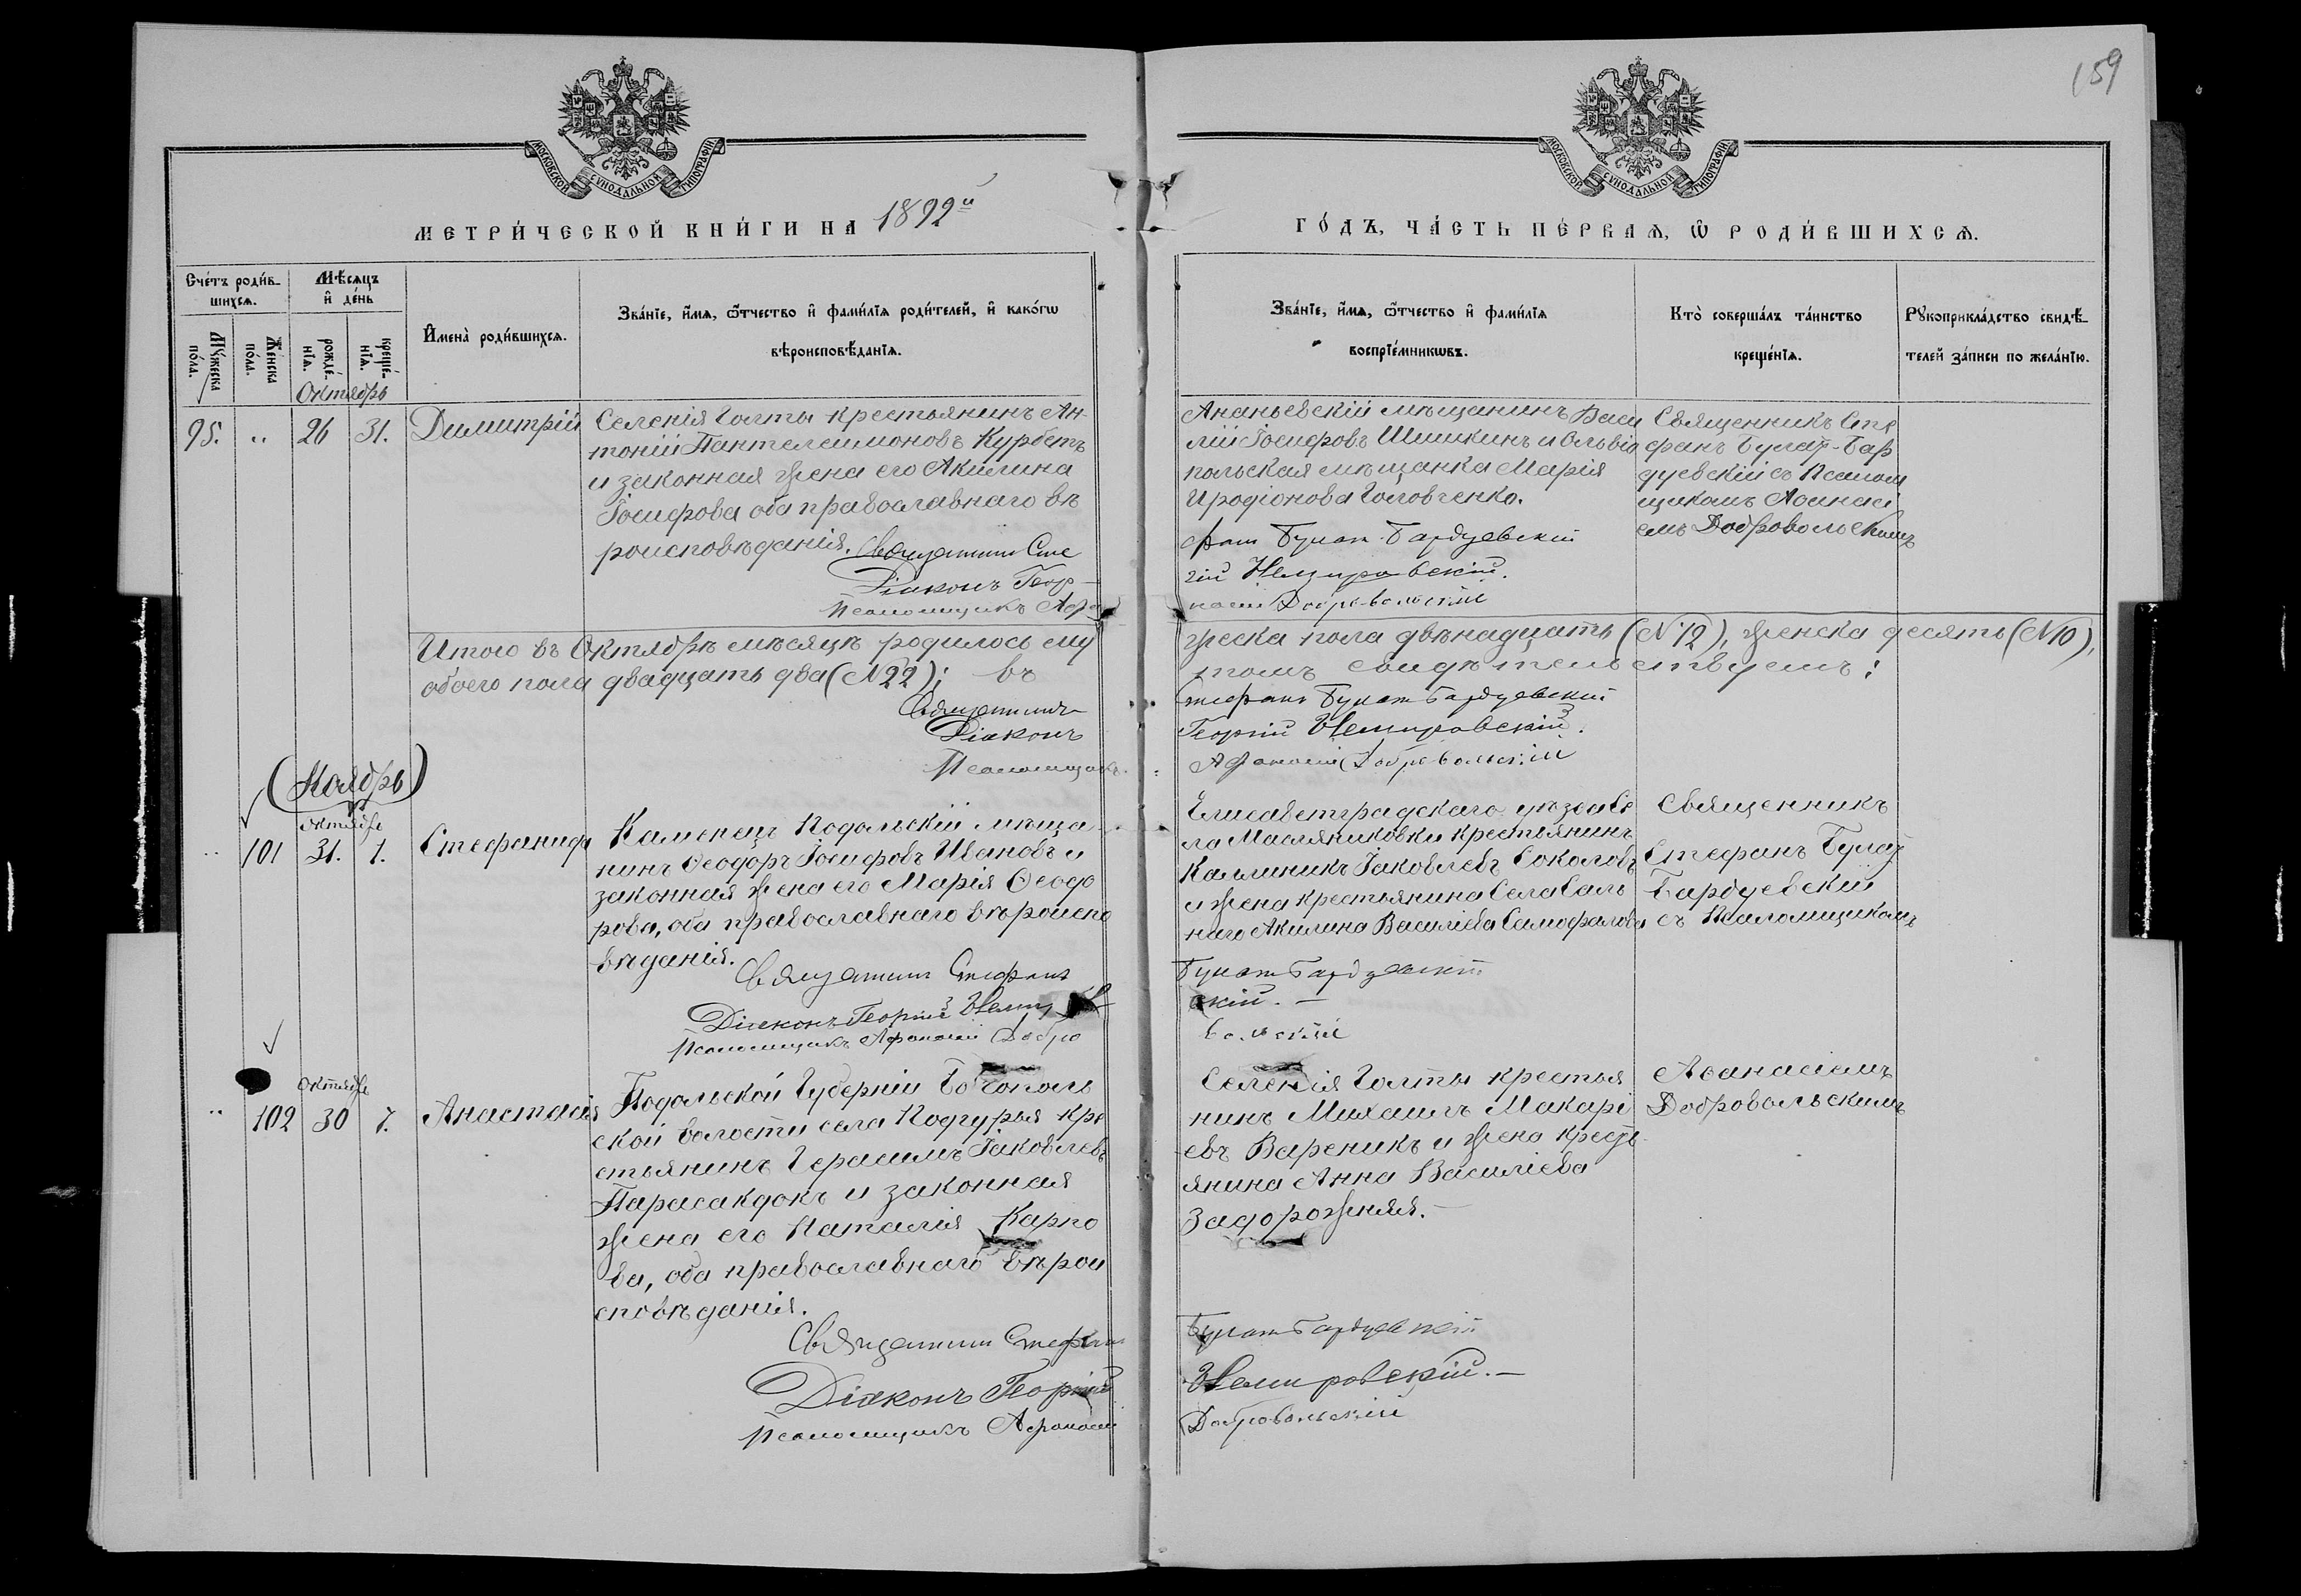 159
МОСКОВСКОЙ СУНОДАЛЬНОЙ ТИПОГРАФІИ
МОСКОВСКОЙ СУНОДАЛЬНОЙ ТИПОГРАФІИ
МЕТРИ́ЧЕСКОЙ КНИ́ГИ НА 1892й
ГО́ДЪ, ЧА́СТЬ ПЕ́РВАѦ, Ѽ РОДИ́ВШИХСѦ.
Сче́тъ роди́в-
шихсѧ.
Мѣ́сѧцъ
и҆ де́нь
Мꙋ́жеска
по́ла.
Же́нска
по́ла.
рожде́-
нїѧ.
креще́-
нїѧ.
И҆мена̀ роди́вшихсѧ.
Зва́нїе, и҆́мѧ, ѻ҆́тчество и҆ фами́лїѧ роди́телей, и҆ како́гѡ
вѣроисповѣ́данїѧ.
Зва́нїе, и҆́мѧ, ѻ҆́тчество и҆ фами́лїѧ
воспрїе́мникѡвъ.
Кто̀ соверша́лъ та́инство
креще́нїѧ.
Рꙋкоприкла́дство свидѣ́-
телей за́писи по жела́нїю.
Октябрь
95. " 26 31. Димитрій
Селенія Голты крестьянинъ Ан-
тоній Пантелеимоновъ Курбетъ
и законная жена его Акилина
Іосифова оба православнаго вѣ
роисповѣданія. Священникъ Сте
Діаконъ Геор-
Псаломщикъ Афа
Ананьевскій мѣщанинъ Васи
лій Іосифовъ Шишкинъ и Ольвіо
польская мѣщанка Марія
Иродіонова Головченко.
фанъ Булат-Бардуевскій
гій Немировскій.
насій Добровольскій
Священникъ Сте
фанъ Булат-Бар
дуевскій съ Псалом
щикомъ Аѳанасі
емъ Добровольскимъ
Итого въ Октябрѣ мѣсяцѣ родилось му
жеска пола двѣнадцать (№12), женска десять (№10),
обоего пола двадцать два (№22); въ
томъ свидѣтельствуемъ:
Священникъ
Стефанъ Булат Бардуевскій
Діаконъ
Георгій Немировскій.
Псаломщикъ
Афанасій Добровольскій
(Ноябрь)
октября
" 101 31. 1. Стефанида
Каменец Подольскій мѣща-
нинъ Ѳеодоръ Іосифовъ Ивановъ и
законная жена его Марія Ѳеодо
рова, оба православнаго вѣроиспо
вѣданія.
Священникъ Стефанъ
Діаконъ Георгій Немиров
Псаломщикъ Афанасій Добро
Елисаветградскаго уѣзда се
ла Масляниковки крестьянинъ
Каллиникъ Іаковлевъ Соколовъ
и жена крестьянина села Саль
наго Акилина Василіева Самофалова
Булат Бардуевскій
скій. –
вольскій
Священникъ
Стефанъ Булат
Бардуевскій
съ Псаломщикомъ
октября
" 102 30 7. Анастасія
Подольской Губерніи Богополь
ской волости села Подгурья кре
стьянинъ Герасимъ Іаковлевъ
Парасакдокъ и законная
жена его Наталія Карпо
ва, оба православнаго вѣрои
сповѣданія.
Священникъ Стефанъ
Діаконъ Георгій
Псаломщикъ Афанасій
Селенія Голты крестья
нинъ Михаилъ Макарі
евъ Вареникъ и жена кресть-
янина Анна Василіева
Задорожняя. –
Булат Бардуевскій
Немировскій. –
Добровольскій
Аѳанасіемъ
Добровольскимъ